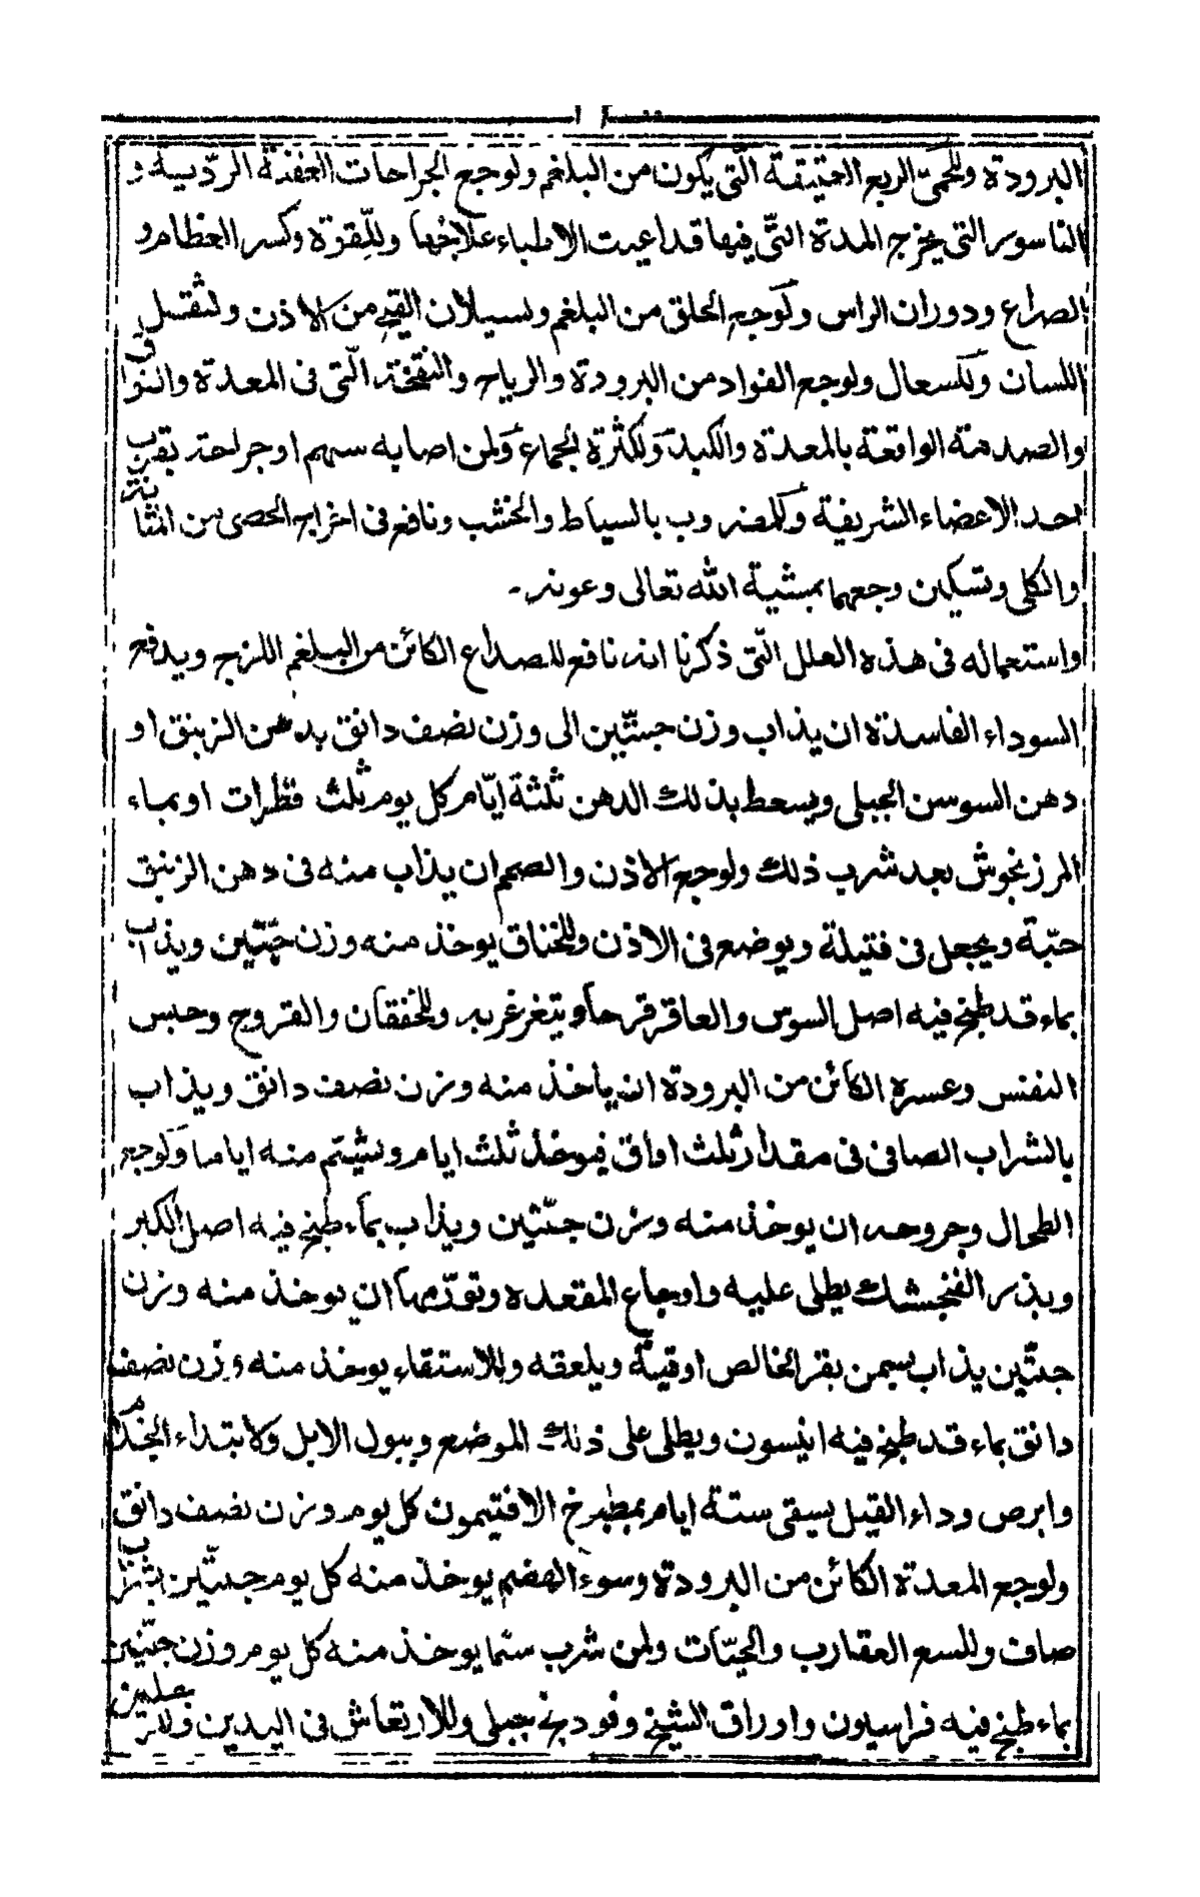 البرودة وللحمّى الربع العتيقة الّتى يكون من البلغم ولوجع الجراحات العفنة الردّيية و
الناسور التى يخرج المدة التّى فيها قد اعيت الاطباء علاجها وللّقوة وكسر العظام و
الصداع ودوران الراس ولوجع الحلق من البلغم وسيلان القيح من الاذن ولثقل
اللسان وللسعال ولوجع الفواد من البرودة والرياح والنفخة الّتى فى المعدة والفواق
والصدمة الواقعة بالمعدة والكبد ولكثرة الجماع ولمن اصابه سهم او جراحة بقرب
احد الاعضاء الشريفة وللمضروب بالسياط والخشب ونافع فى اخراج الحصى من المثانة
والكلى وتسكين وجعهما بمشية الله تعالى وعونه ۔
واستعماله فى هذه العلل الّتى ذكرنا انه نافع للصداع الكائن من البلغم اللزج ويدفع
السوداء الفاسدة ان يذاب وزن حبتّين الى وزن نصف دانق بدهن الزنبق او
دهن السوسن الجبلى ويسعط بذلك الدهن ثلثة ايّام كل يوم ثلث قطرات او بماء
المرزنجوش بعد شرب ذلك ولوجع الاذن والصمم ان يذاب منه فى دهن الزنبق
حبّة ويجعل فى فتيلة ويوضع فى الاذن وللخناق يوخذ منه وزن حبّتين ويذاب
بماء قد طبخ فيه اصل السوس والعاقرقرحا ويتغرغر به وللخفقان والقروح وحبس
النفس وعسره الكائن من البرودة ان ياخذ منه وزن نصف دانق ويذاب
بالشراب الصافى فى مقدار ثلث اواق فيوخذ ثلث ايام ويشتم منه اياما ولوجع
الطحال وجروحه ان يوخذ منه وزن حبّتين ويذاب بماء طبخ فيه اصل الكبر
وبذر الفنجشك يطلى عليه واوجاع المقعده وتورّمها ان يوخذ منه وزن
حبتّين يذاب بسمن بقر الخالص اوقية ويلعقه وللاستقاء يوخذ منه وزن نصف
دانق بماء قد طبخ فيه انيسون ويطلى على ذلك الموضع وببول الابل ولابتداء الجذام
وابرص وداء الفيل يسقى ستة ايام بمطبوخ الافتيمون كل يوم وزن نصف دانق
ولوجع المعدة الكائن من البرودة وسوء الهضم يوخذ منه كل يوم حبتّين بشراب
صاف وللسع العقارب والحيّات ولمن شرب سمّا يوخذ منه كل يوم وزن حبّتين
بماء طبخ فيه فراسيون واوراق الشيح وفودنج جبلى وللارتعاش فى اليدين والرجلين